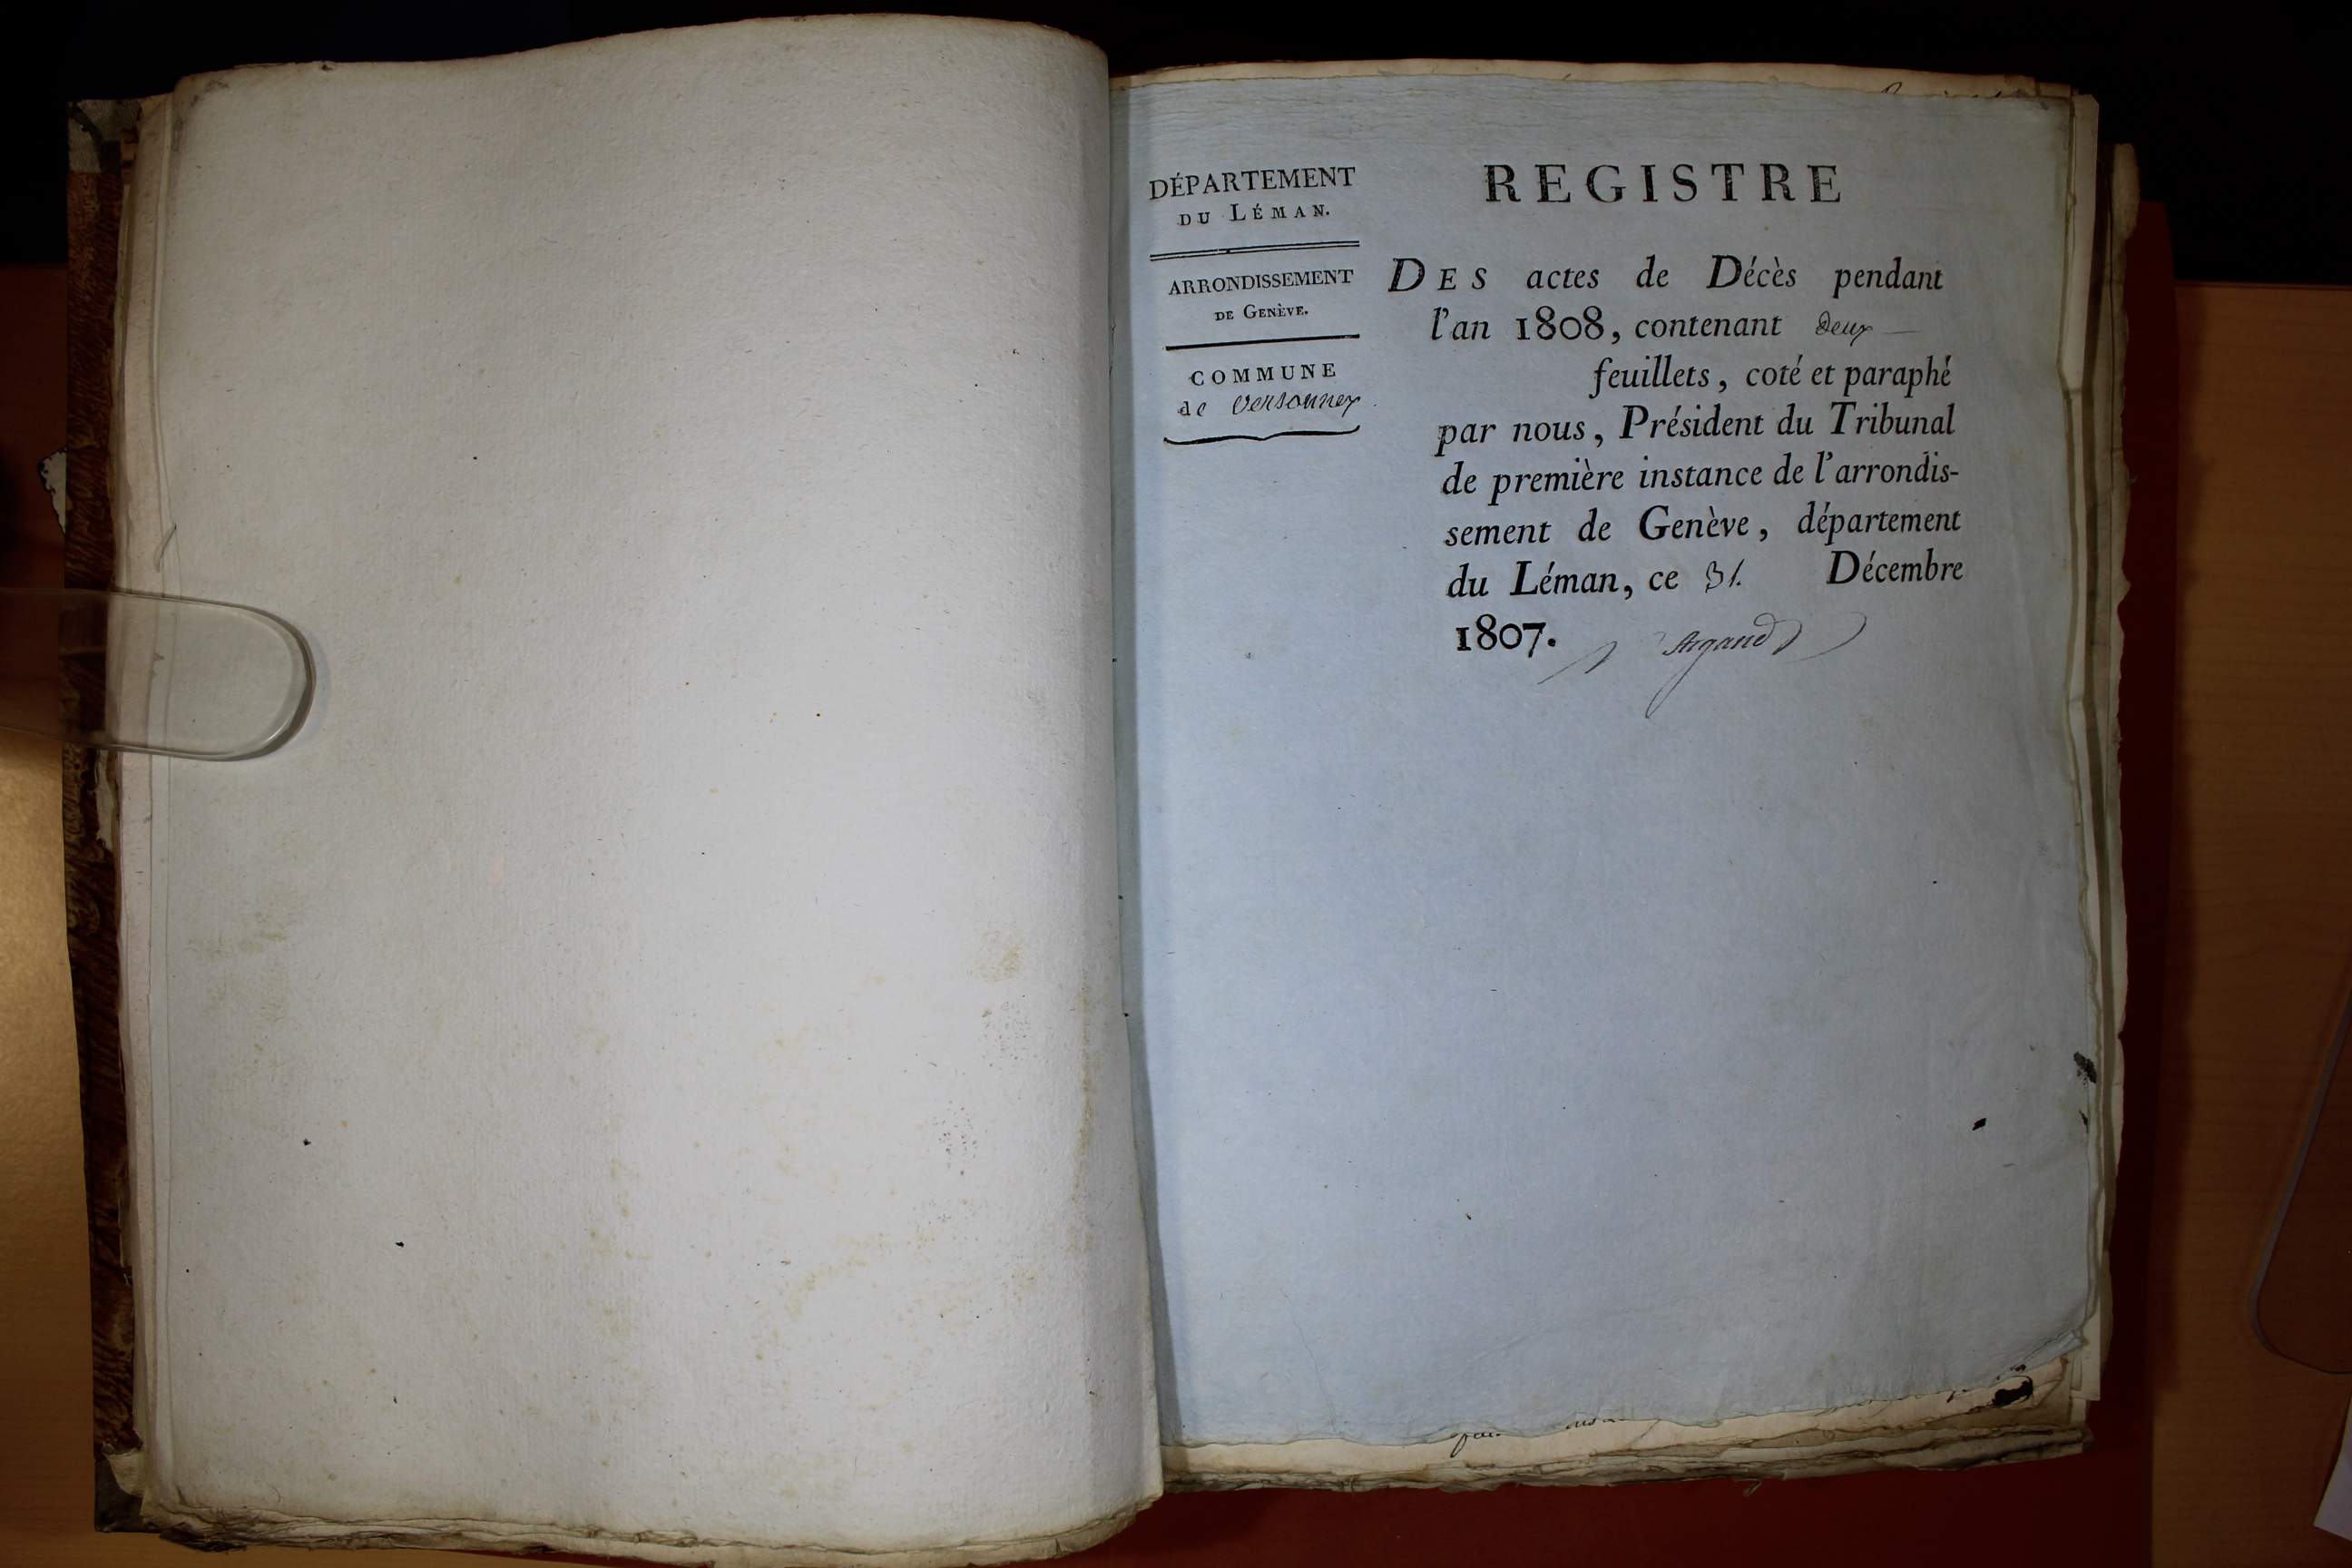 DÉPARTEMENT
DU LÉMAN.
ARRONDISSEMENT
DE GENÈVE.
COMMUNE
de Versonnex
REGISTRE
DES actes de Décès pendant
l'an 1808, contenant deux
feuillets, coté et paraphé
par nous, Président du Tribunal
de première instance de l'arrondis-
sement de Genève, département
du Léman, ce 31. Décembre
1807.
Argand